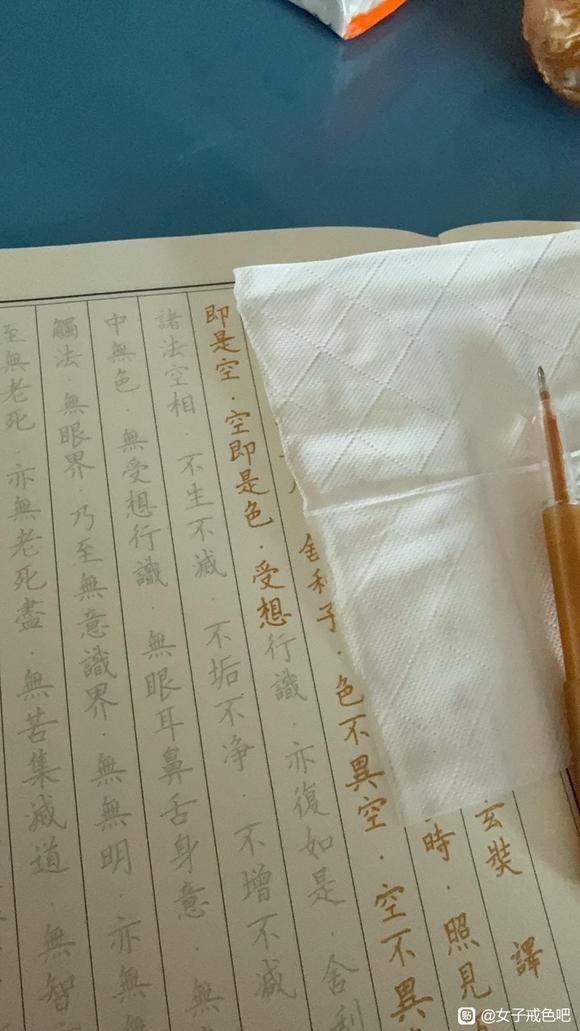 玄奘 譯
時．照見
舍利子．色不異空．空不異
即是空．空即是色．受想行識．亦復如是．舍利
諸法空相．不生不滅．不垢不净．不增不減
中無色．無受想行識．無眼耳鼻舌身意．無
觸法．無眼界．乃至無意識界．無無明．亦無
至無老死．亦無老死盡．無苦集滅道．無智
@女子戒色吧